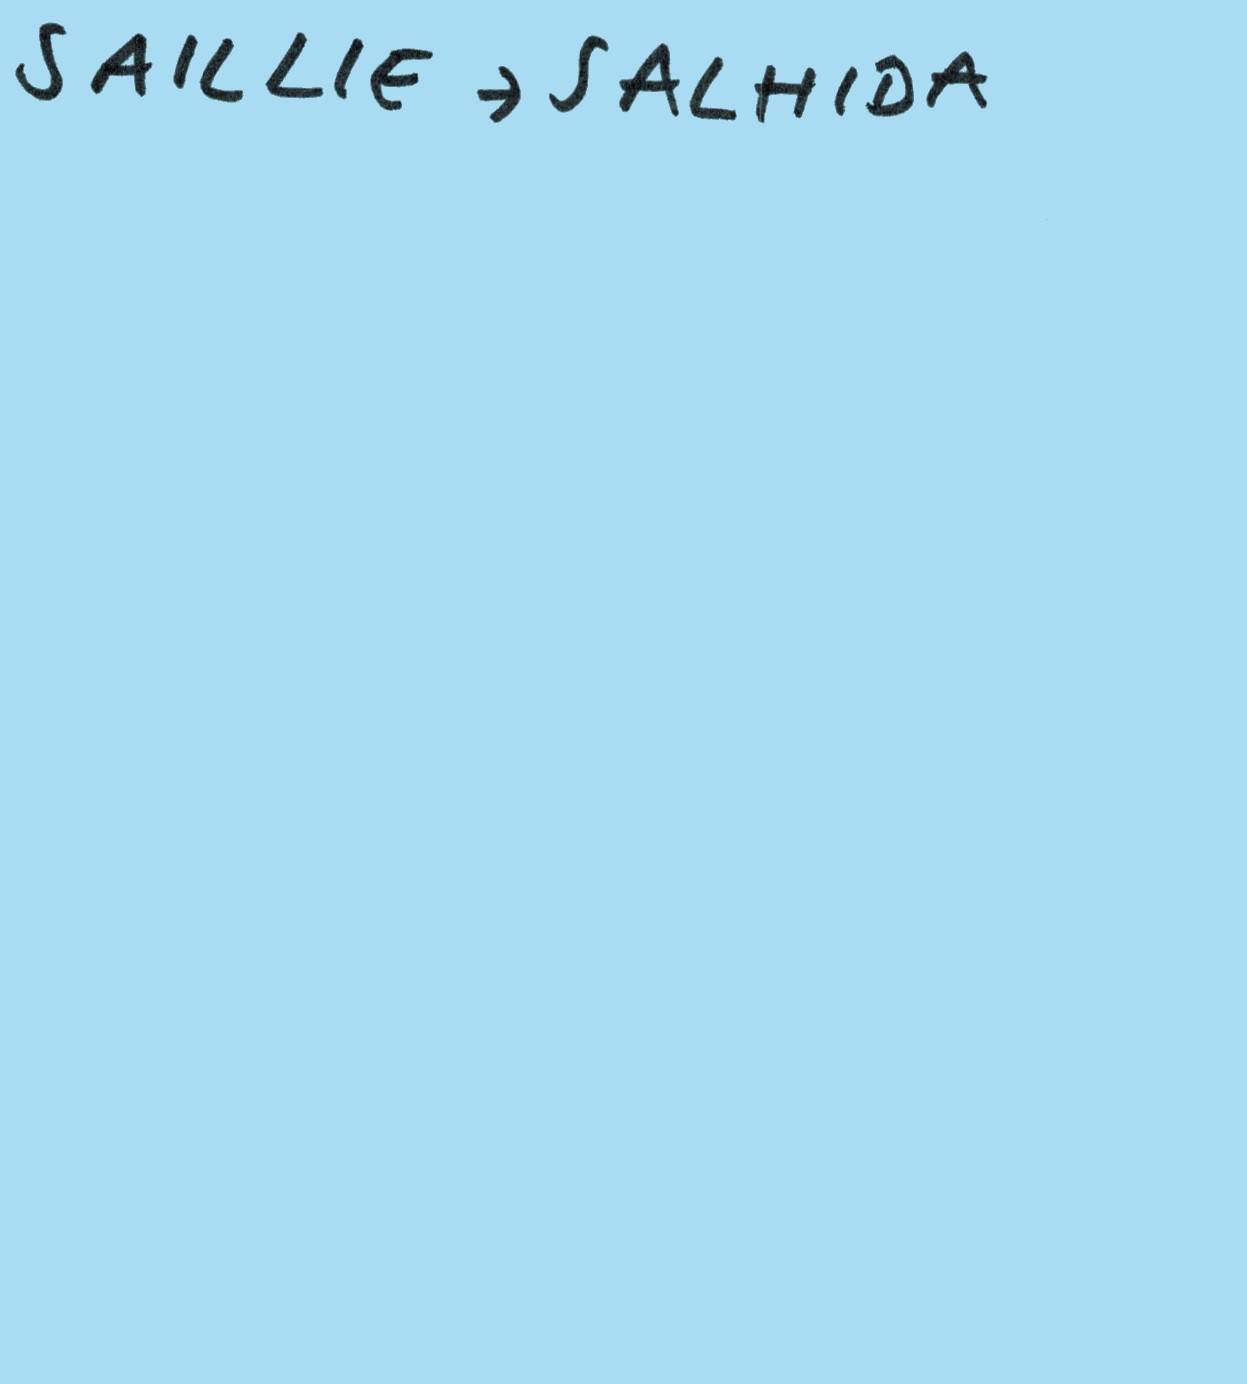 SAILLIE → SALHIDA